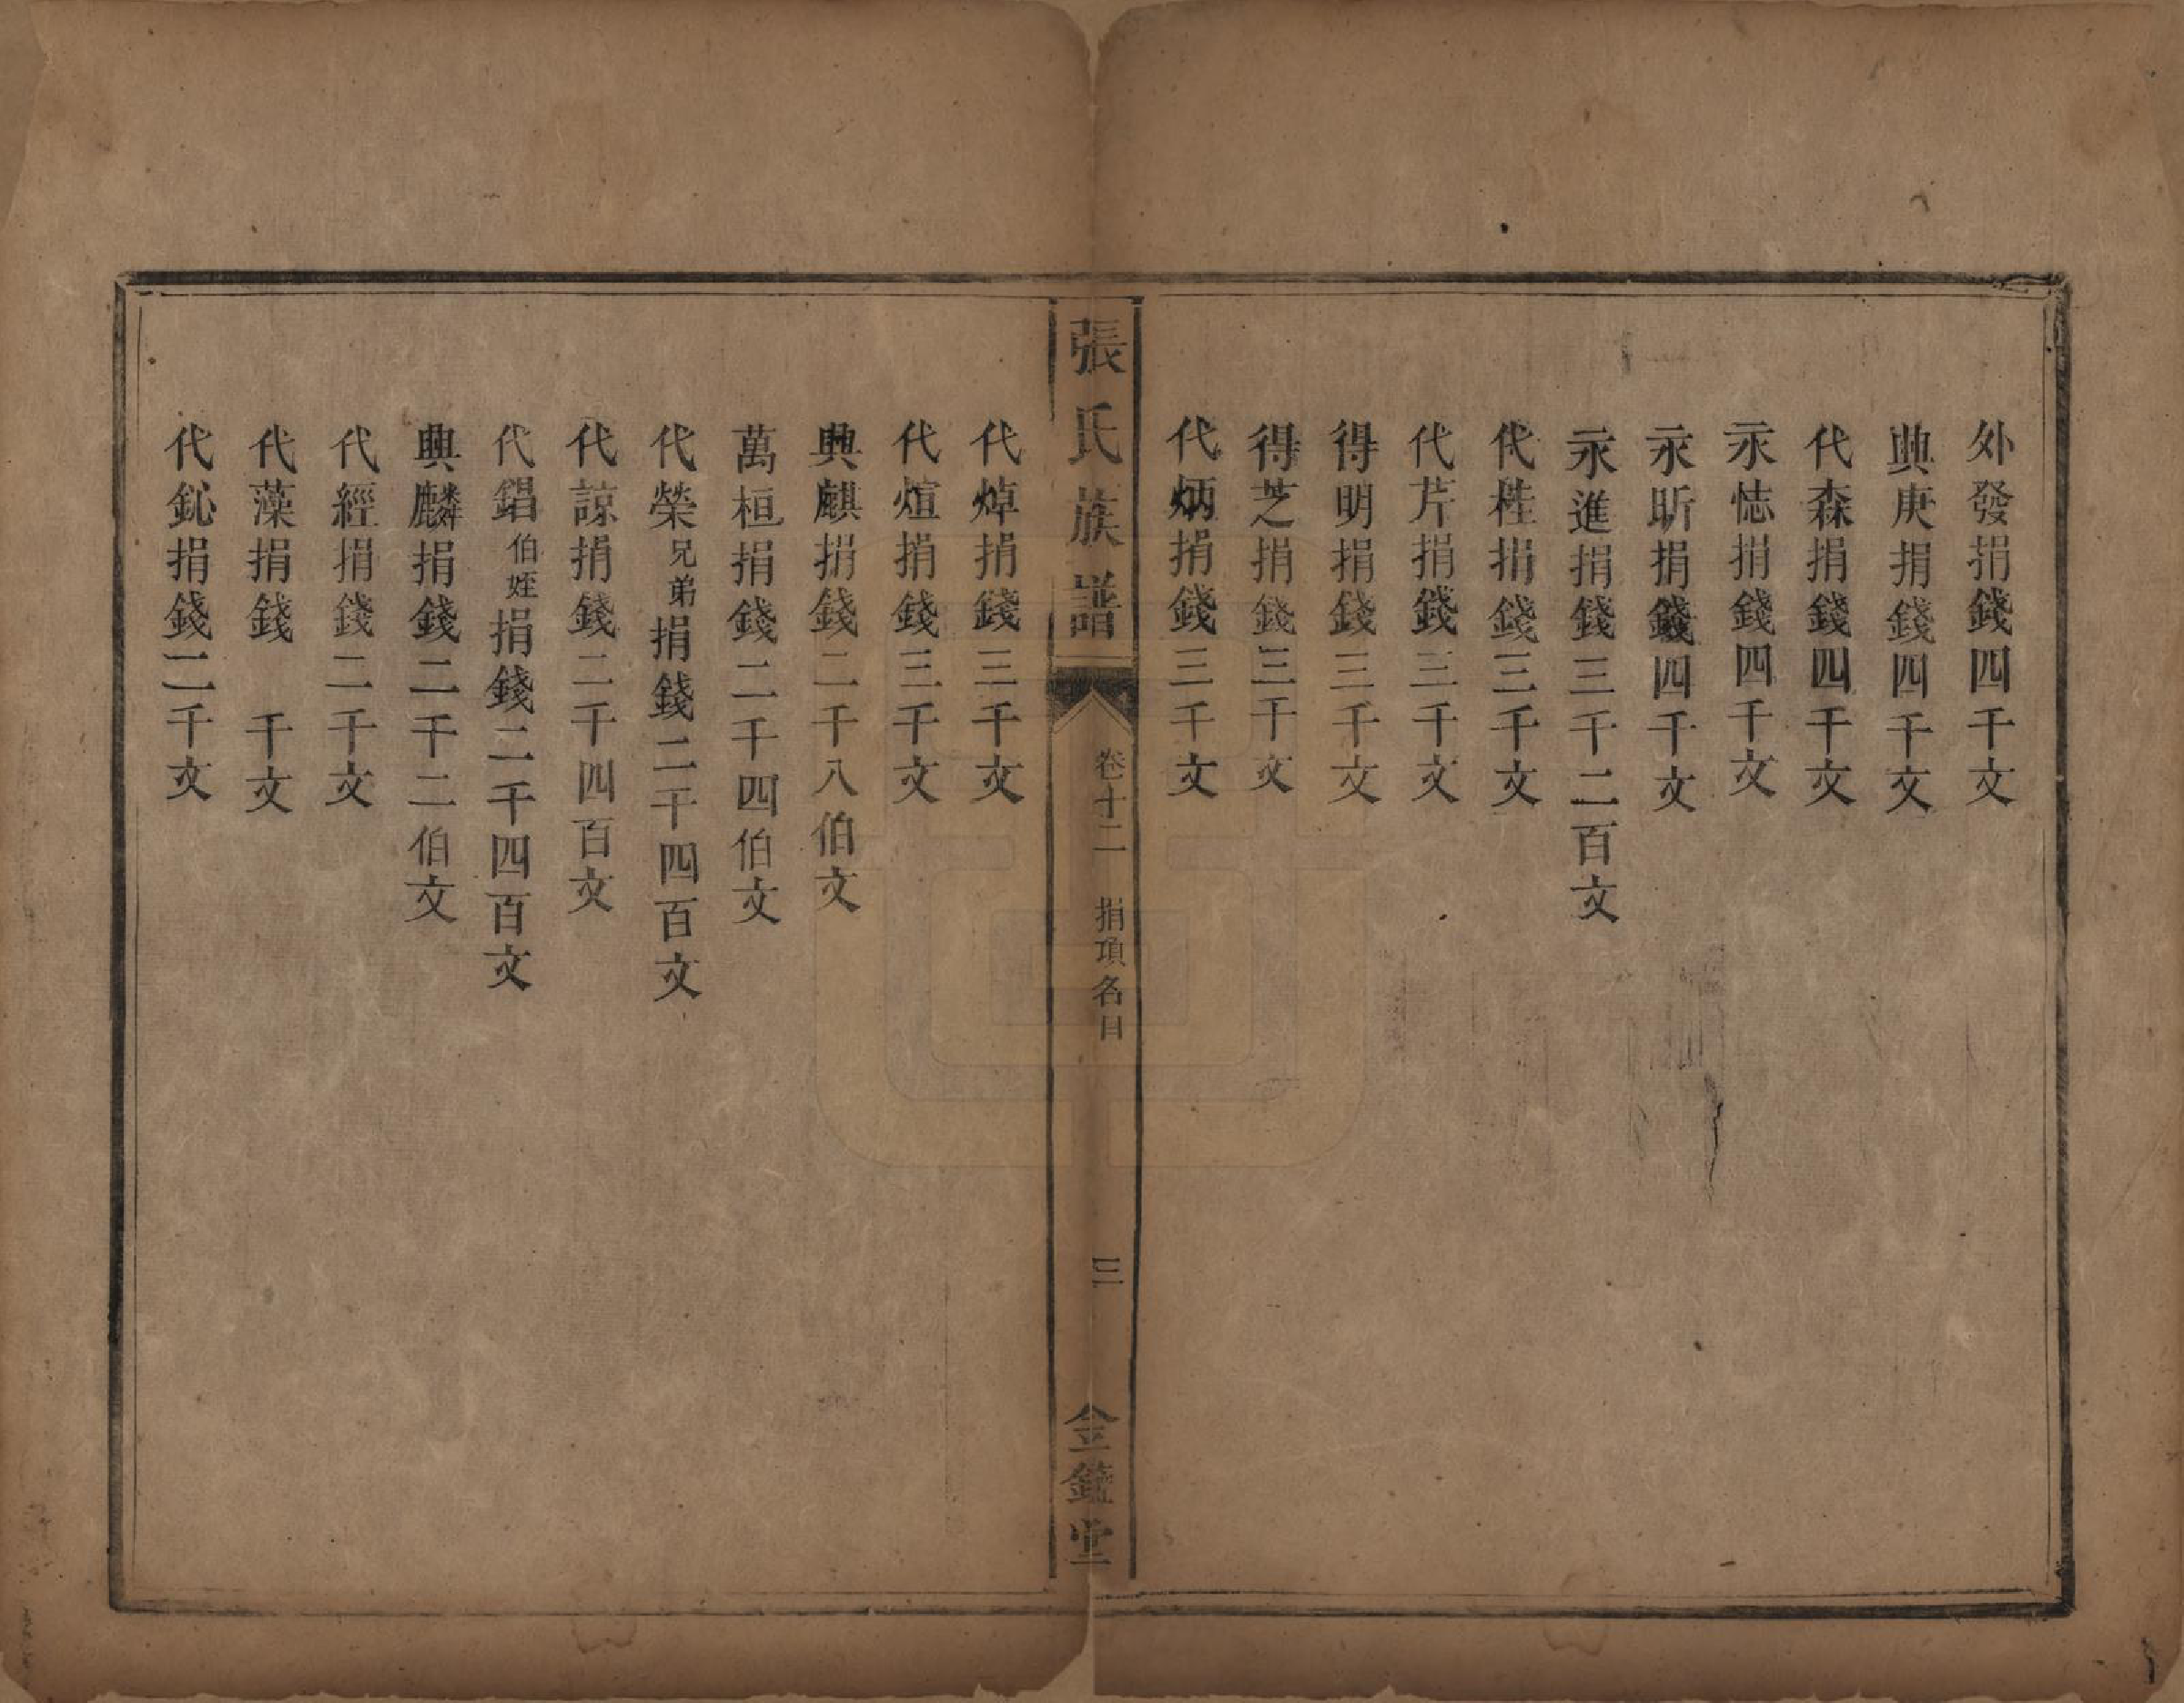 外發捐錢四千文
典庚捐錢四千文
代森捐錢四千文
永𢛳捐錢四千文
永昕捐錢四千文
永進捐錢三千二百文
代桂捐錢三千文
代芹捐錢三千文
得明捐錢三千文
得芝捐錢三千文
代炳捐錢三千文
張氏族譜
卷十二 捐項名目
三
金鑑堂
代焯捐錢三千文
代煊捐錢三千文
興麒捐錢二千八伯文
萬桓捐錢二千四伯文
代榮兄弟捐錢二千四百文
代諒捐錢二千四百文
代錩伯姪捐錢二千四百文
興麟捐錢二千二伯文
代經捐錢二千文
代藻捐錢 千文
代鈊捐錢二千文